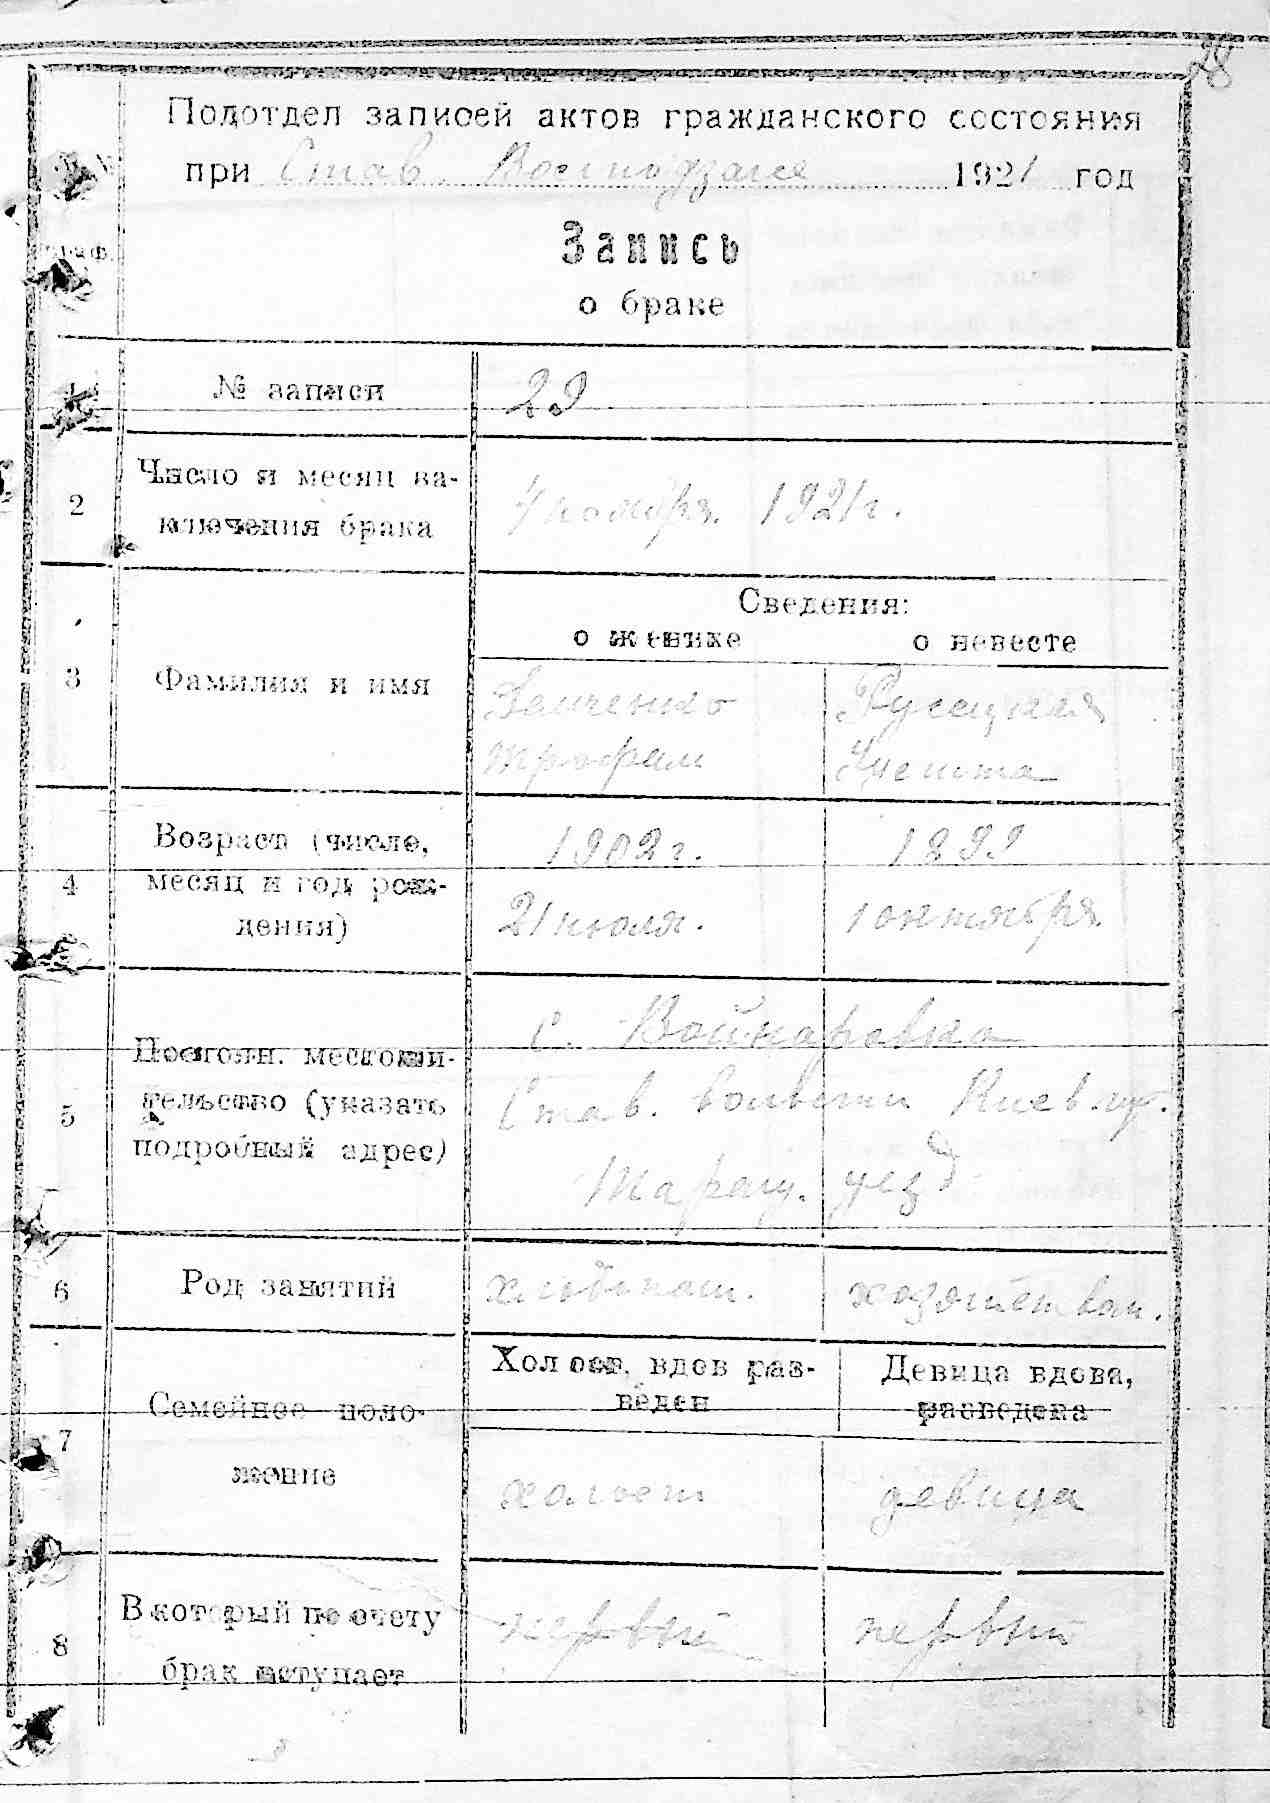 28
Подотдел записей актов гражданского состояния
при Став. 1921 год
Граф.
Запись
о браке
1 № записи 29
2 Число и месяц за-
ключения брака
4 ноября 1921 г.
Сведения:
о женихе о невесте
3 Фамилия и имя
Трофим
Возраст (число, 1902 г. 1899
4 месяц и год рож-
дения)
21 июля. 1 октября
с. Войнаровка
5 Постоян. местожи-
тельство (указать
подробный адрес)
Став. волости Киев. губ.
Таращ. уезд
6 Род занятий хлебопаш. хозяйствен.
Холост, вдов раз-
веден
Девица вдова,
разведена
7 Семейное поло-
жение
холост девица
8 В который по счету
брак вступает
первый первый